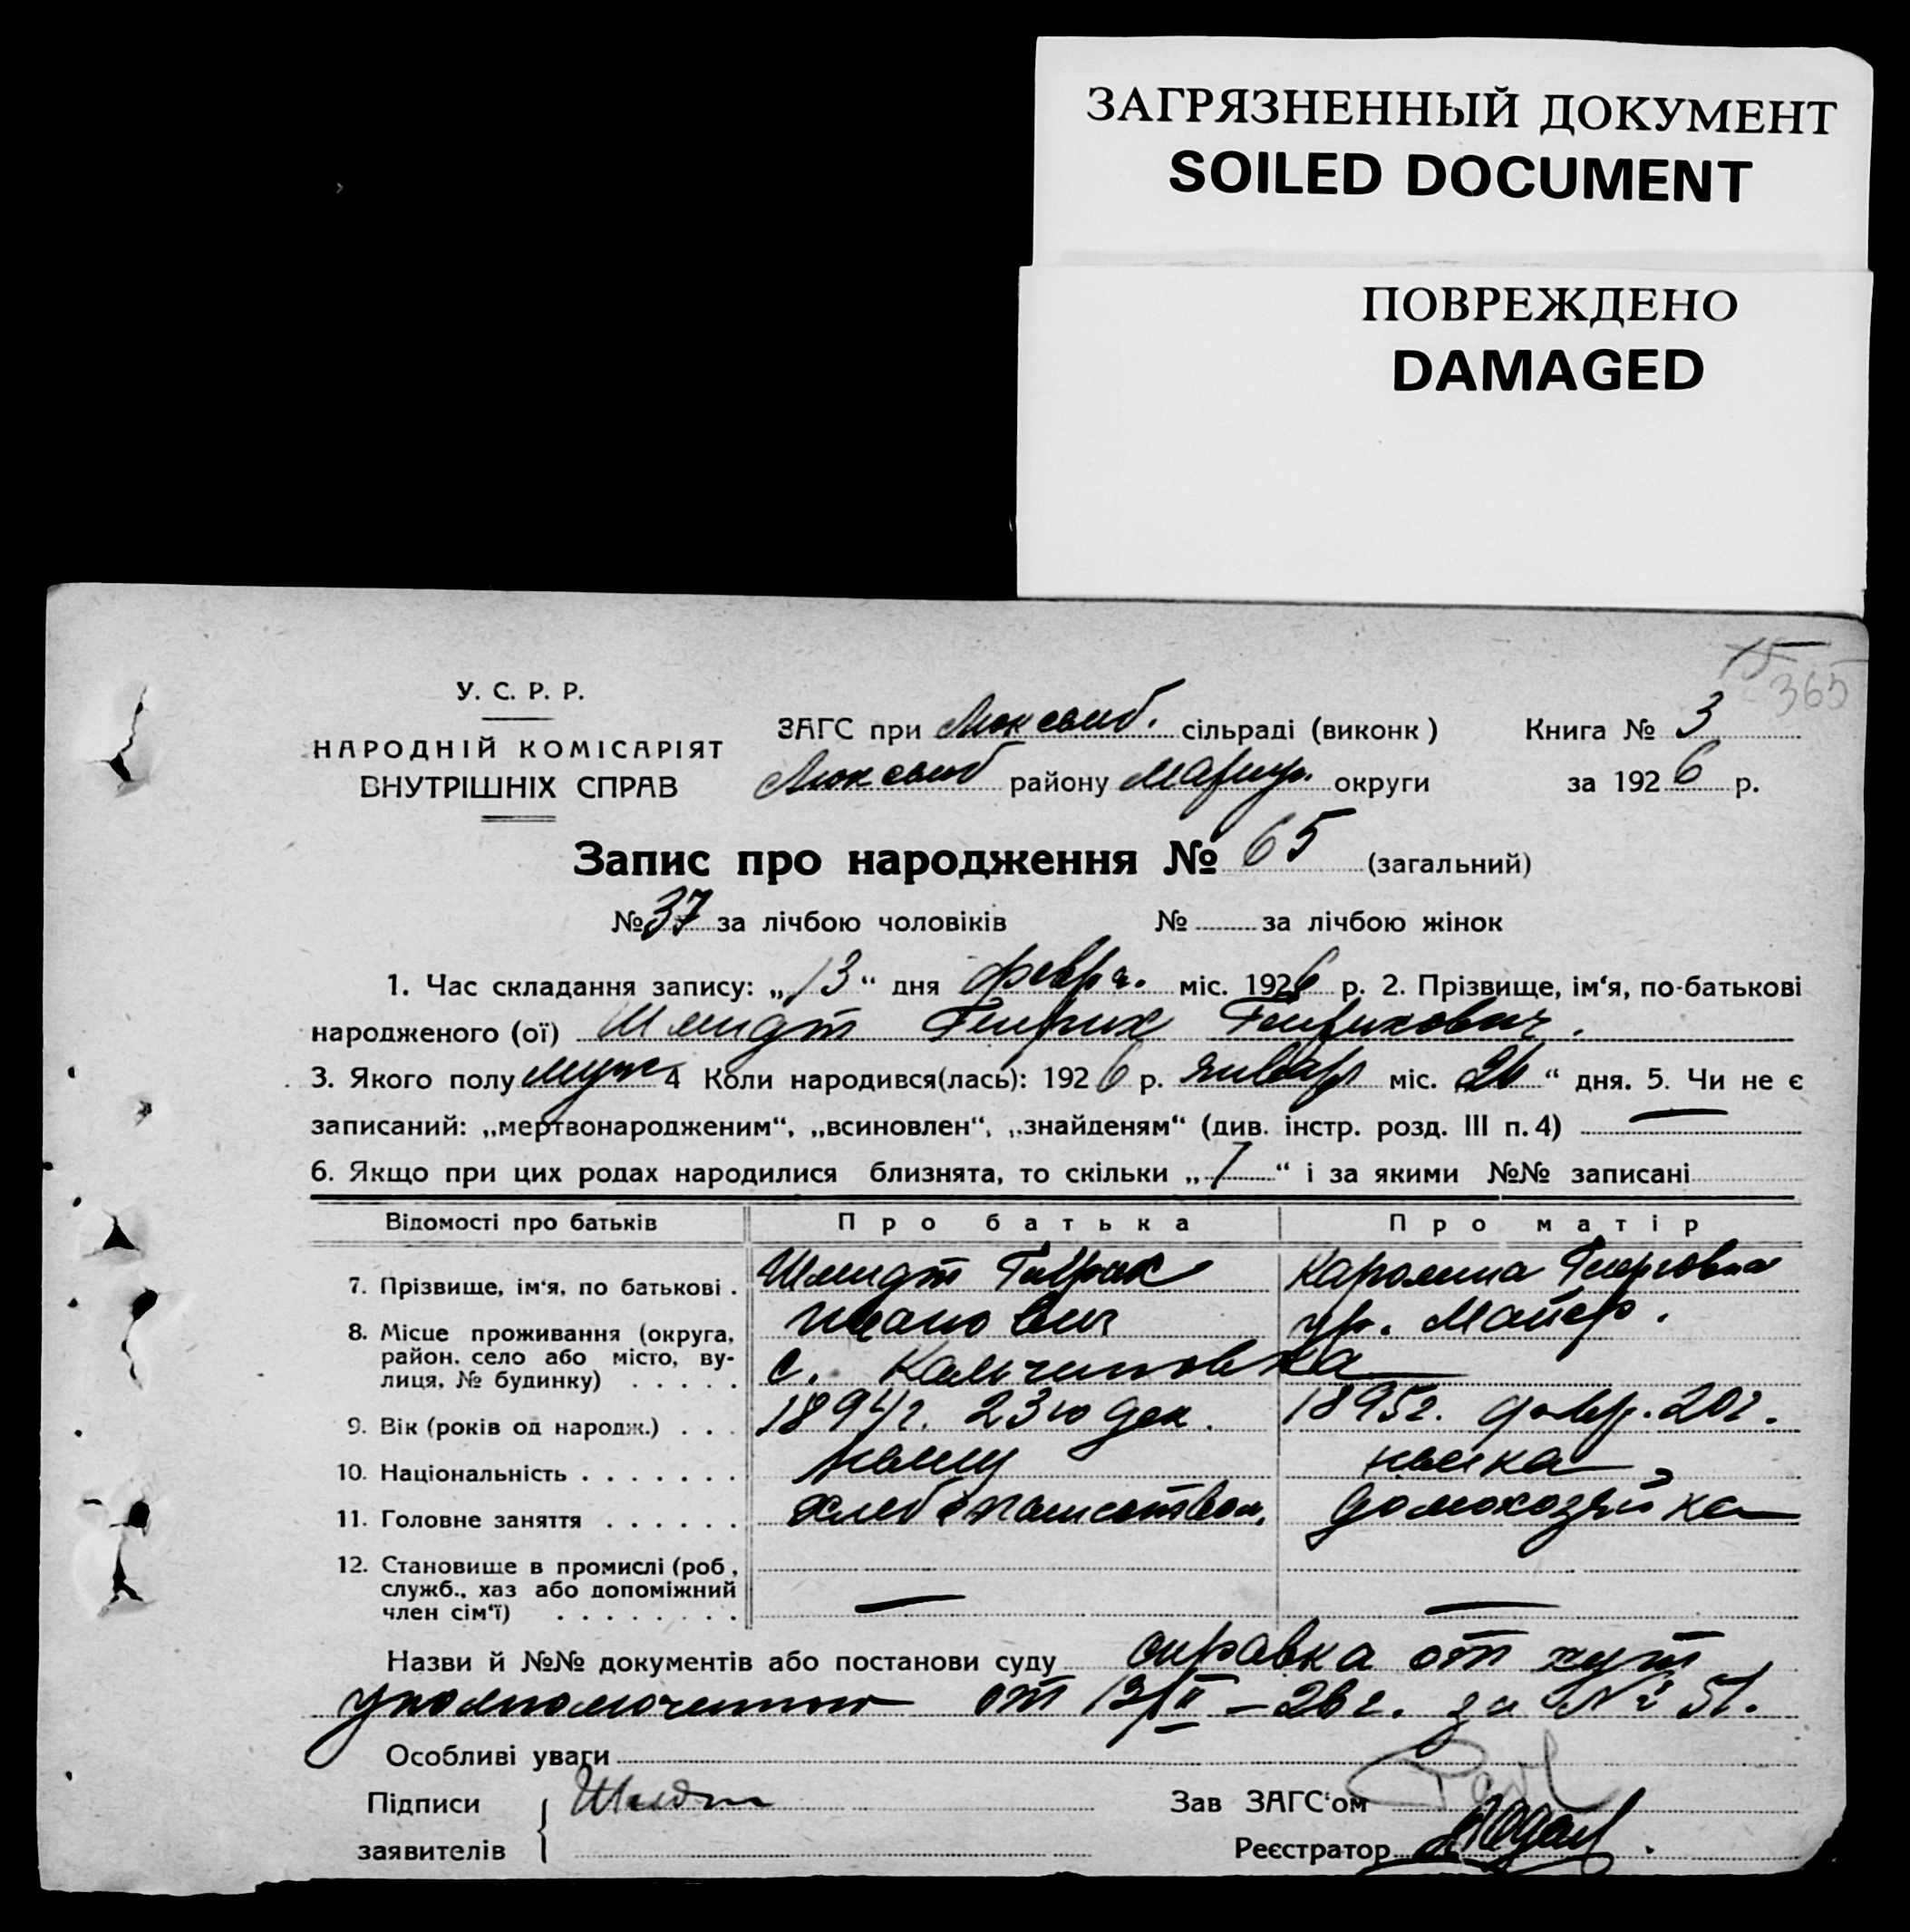 ЗАГРЯЗНЕННЫЙ ДОКУМЕНТ
SOILED DOCUMENT
ПОВРЕЖДЕНО
DAMAGED
15
365
У. С. Р. Р.
НАРОДНІЙ КОМІСАРІЯТ
ВНУТРІШНІХ СПРАВ
ЗАГС при Люксемб. сільраді (виконк)
Люксемб району Мариуп. округи
Книга № 3
за 1926 р.
Запис про народження № 65 (загальний)
№ 37 за лічбою чоловіків № за лічбою жінок
1. Час складання запису: „13“ дня февр. міс. 1926 р. 2. Прізвище, ім‘я, по-батькові
народженого (ої) Шмидт Генрих Генрихович.
3. Якого полу муж 4 Коли народився(лась): 1926 р. январ міс. 26“ дня. 5. Чи не є
записаний: „мертвонародженим“, „всиновлен“, „знайденям“ (див. інстр. розд. III п. 4) —
6. Якщо при цих родах народилися близнята, то скільки „1“ і за якими №№ записані
Відомості про батьків Про батька Про матір
7. Прізвище, ім‘я, по батькові . Шмидт Генрих Каролина Георговна
Иванович ур. Майер.
8. Місце проживання (округа,
район. село або місто, ву-
лиця, № будинку) . . . . . с. Кальчиновка
9. Вік (років од народж.) . . . 1894 г. 23го дек. 1895 г. февр. 20 г.
10. Національність . . . . . . . немец немка
11. Головне заняття . . . . . . хлебопашеством. домохозяйка
12. Становище в промислі (роб,
служб., хаз або допоміжний
член сім‘ї) . . . . . . . . — —
Назви й №№ документів або постанови суду справка от хут
уполномоченного от 13/II – 26 г. за № 51.
Особливі уваги
Підписи Шмидт
заявителів
Зав ЗАГС‘ом
Реєстратор